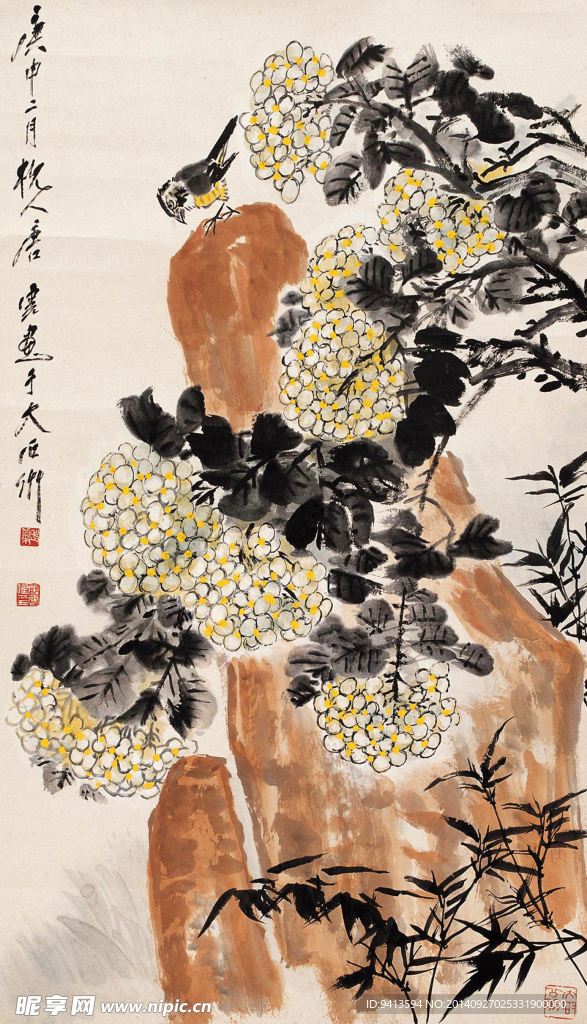 庚申二月杭人唐云画于大石斋
昵享网 www.nipic.cn
ID:9413594 NO:20140927025331900000